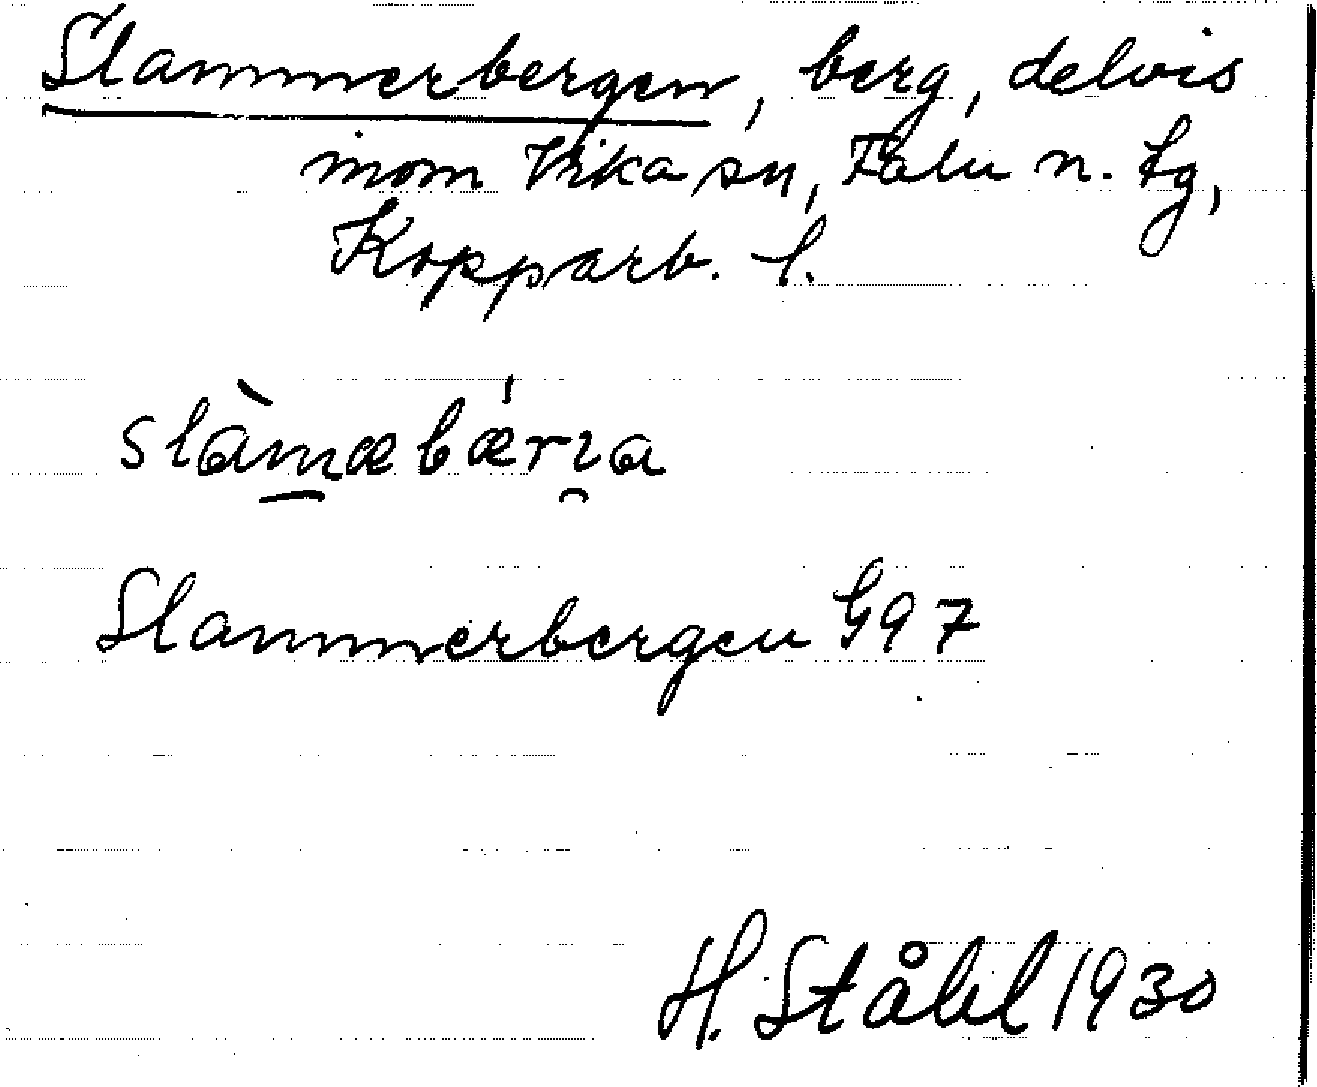 Slammerbergen, berg, delvis
inom Vika sn, Falu n. tg,
Kopparb. l.
slàmæbǽrɪ̯a
Slammerbergen G97
H. Ståhl 1930